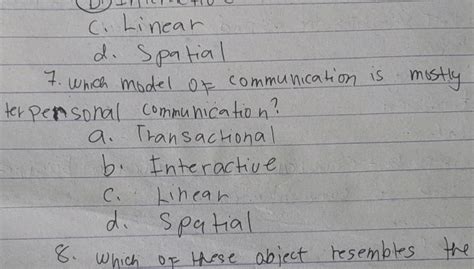 b. Interactive
c. Linear
d. Spatial
7. which model of communication is mostly
terpersonal communication?
a. Transactional
b. Interactive
c. Linear
d. Spatial
8. which of these object resembles the